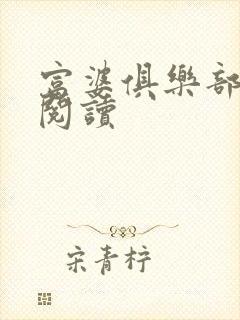 富婆俱樂部
閱讀
宋青柠